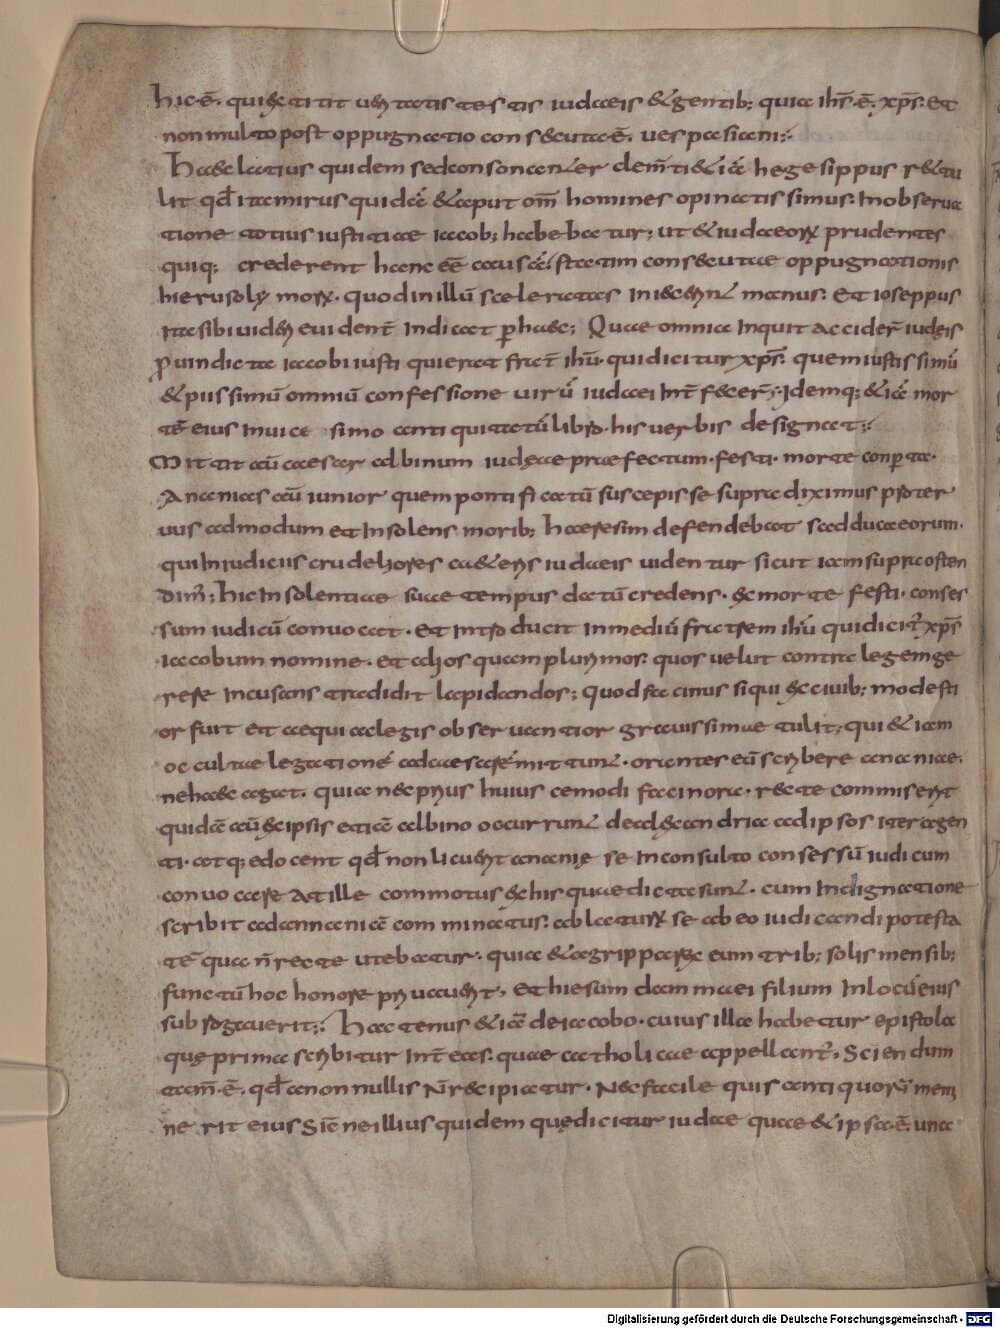 hic·ē· quiextitit ueritatis testis iudaeis &gentib; quia ihs̄·ē· xp̄s· Et
non multo post oppugnatio consecuta·ē· uespasiani;·
Haec latius quidem sed consonanter clem̄ti &iā hegesippus r&tu
lit qd̄ ita mirus quidā &aput om̄ homines opinatissimus· Inobserua
tione totius iustitiae iacob; habebatur; ut &iudaeorx prudentes
quiq; crederent hanc eē causā· statim consecutae oppugnationis
hierusolymorx· quod in illū sceleratas iniecerint manus· Et ioseppus
ita sibi uideri euident̄ indicat p hac; Quae omnia Inquit accider̄ iudeis
p uindicta iacobi iusti qui erat frat̄ ihū· qui dicitur xp̄s· quem iustissimū
&piissimū omniū confessione uirū iudaei Int̄ fecer̄; Idemq; &iā mor
tē eius Inuice simo antiquitatū libro· his uerbis designat;·
Mittit aū caesar albinum iudeae praefectum· festi· morte conperta·
Ananias aū iunior quem pontificatū suscepisse supra diximus proter
uus admodum et Insolens morib; haeresim defendebat sadducaeorum·
qui In iudiciis crudeliores caeteris iudaeis uidentur sicut iam supra osten
dim̄; hic Insolentiae suae tempus datū credens· ex morte festi· conses
sum iudicū conuocat· Et Intro ducit In mediū fratrem ihū qui dicit̄ xp̄s
iacobum nomine· et alios quam plurimos quos uelut contra legem ge
rere Incusans tradidit lapidandos; quod facinus siqui ex ciuib; modesti
or fuit et aequi ac legis obseruantior grauissimae tulit; qui &iam
occultae legationē ad caesarē mittunt· orantes eū scribere ananiae·
ne haec agat· quia nec prius huiuscemodi facinora· recte commiserit
quidā aū ex ipsis etiā albino occurrunt de alexandria ad ipsos iter agen
ti· atq; edocent qd̄ non licuerit ananię se Inconsulto consessū iudicum
conuocare At ille commotus ex his quae dicta sunt· cum Indignatione
scribit ad annaniā comminatus ablaturx se ab eo iudicandi potesta
tē qua n̄ recte utebatur· quia &agrippa rex eum trib; solis mensib;
functū hoc honore priuauerit· Et hiesum dammaei filium In locū eius
subrogauerit;· Hactenus &iā de iacobo· cuius illa habetur epistola
quę prima scribitur Int̄ eas· quae catholicae appellant̄· Sciendum
tam̄·ē· qd̄ a nonnullis n̄ recipiatur· Nec facile quis antiquorū mem
nerit eius Sic nec illius quidem quę dicitur iudae quae &ipsa·ē· una
Digitalisierung gefördert durch die Deutsche Forschungsgemeinschaft - DFG